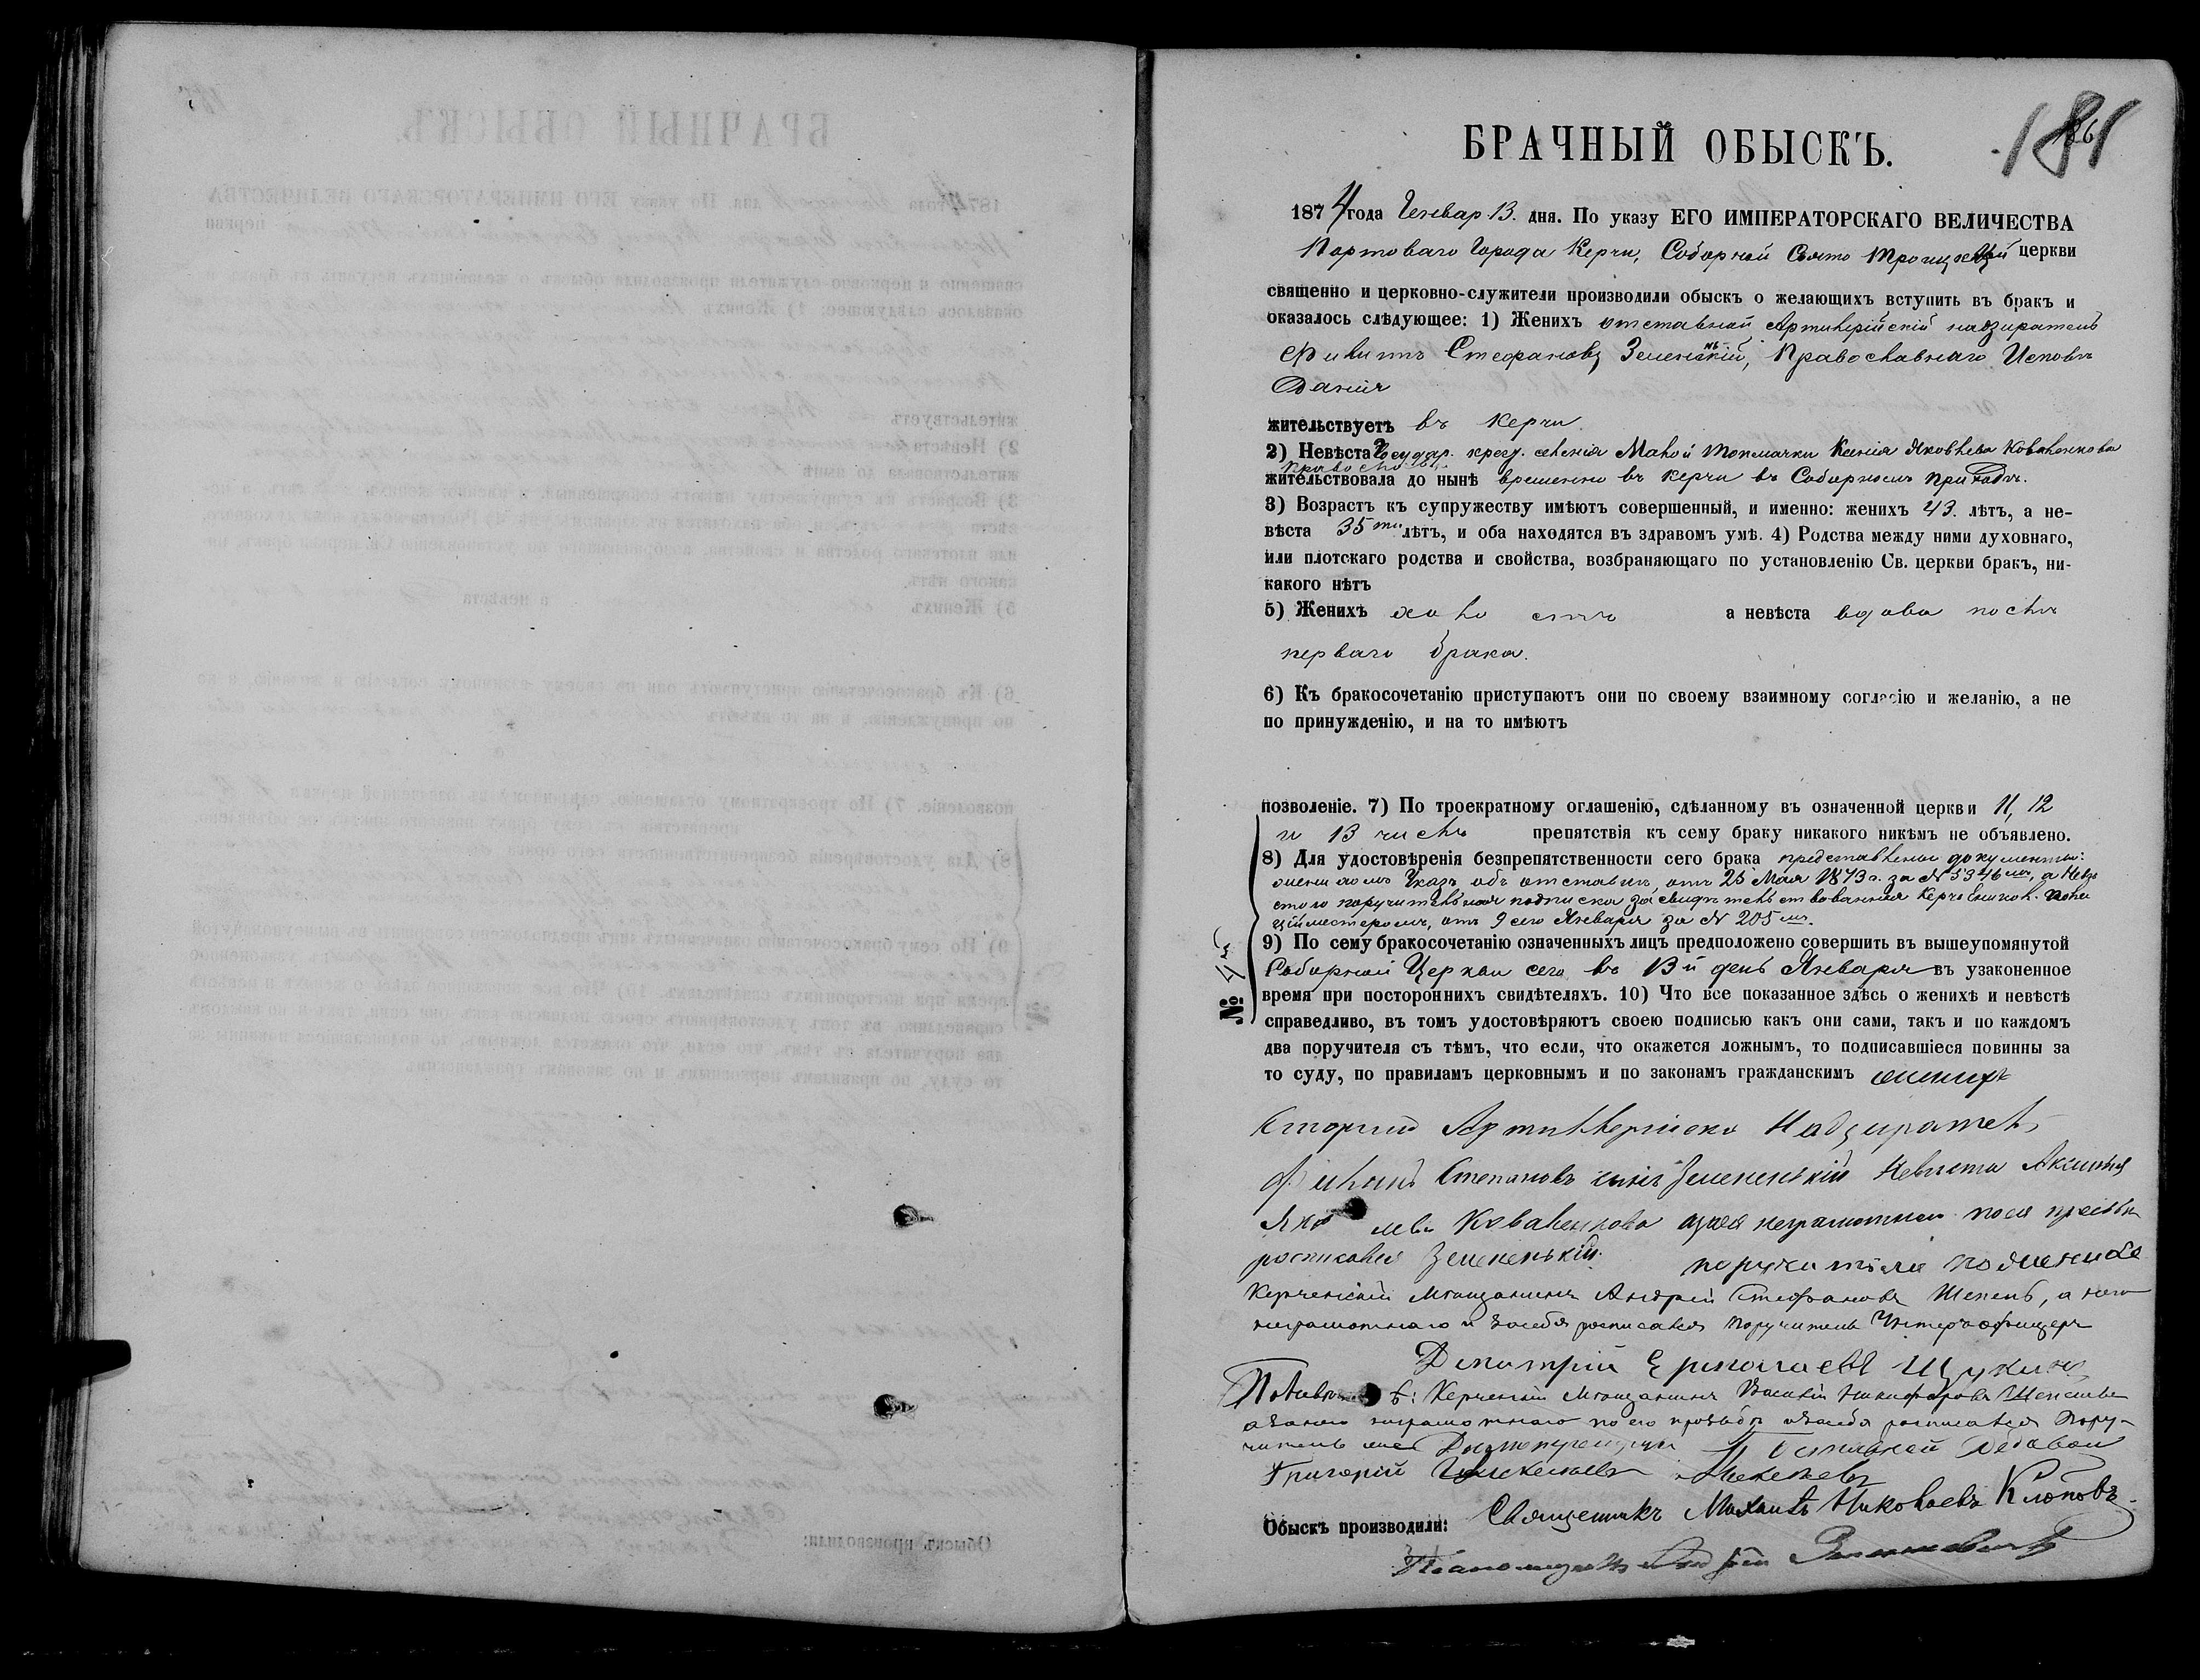 181
БРАЧНЫЙ ОБЫСКЪ.
1874 года Генвар. 13. дня. По указу ЕГО ИМПЕРАТОРСКАГО ВЕЛИЧЕСТВА
Портоваго Города Керчи, Соборной Свято Троицкой церкви
священно и церковно-служители производили обыскъ о желающихъ вступить въ бракъ и
оказалось слѣдующее: 1) Женихъ отставной Артилерійскій надзиратель
Филипъ Стефановъ Земенькій, Православнаго Исповѣ
данія
жительствуетъ въ Керчи
2) Невѣста Государ. крест. селенія Малой Токмачки Ксенія Яковлева Коваленкова
Правосл.
жительствовала до нынѣ временно въ Керчи въ Соборномъ приходѣ.
3) Возрастъ къ супружеству имѣютъ совершенный, и именно: женихъ 43. лѣтъ, а не-
вѣста 35ти лѣтъ, и оба находятся въ здравомъ умѣ. 4) Родства между ними духовнаго,
или плотскаго родства и свойства, возбраняющаго по установленію Св. церкви бракъ, ни-
какого нѣтъ
5) Женихъ холостъ а невѣста вдова послѣ
перваго брака.
6) Къ бракосочетанію приступаютъ они по своему взаимному согласію и желанію, а не
по принужденію, и на то имѣютъ
позволеніе. 7) По троекратному оглашенію, сдѣланному въ означенной церкви 11, 12
и 13 числъ препятствія къ сему браку никакого никѣмъ не объявлено.
8) Для удостовѣренія безпрепятственности сего брака представлены документы:
женихомъ Указъ объ отставкѣ, отъ 25 Мая 1873 г. за № 5346мъ, а Невѣ
стою поручительная подписка засвидѣтельствованная Керчь Еникол. поли
ційместеромъ, отъ 9 сего Января за № 205мъ.
9) По сему бракосочетанію означенныхъ лицъ предположено совершить въ вышеупомянутой
Соборной Церкви сего въ 13й день Января въ узаконенное
№ 4й
время при постороннихъ свидѣтеляхъ. 10) Что все показанное здѣсь о женихѣ и невѣстѣ
справедливо, въ томъ удостовѣряютъ своею подписью какъ они сами, такъ и по каждомъ
два поручителя съ тѣмъ, что если, что окажется ложнымъ, то подписавшіеся повинны за
то суду, по правиламъ церковнымъ и по законамъ гражданскимъ
Надзиратель
Степановъ сынъ Земененькій Невѣста
Коваленкова
росписался Земененькій. поручители по женихѣ
Керченскій Мѣщанинъ Андрей Стефановъ Шепель, а него
неграмотнаго и засебя росписался поручитель Унтеръ офицеръ
Димитрій Ермолаевъ Щукинъ
Керченскій Мѣщанинъ Василій Никифоровъ
неграмотнаго по его прозьбѣ изасебя росписался пору-
читель
Григорій
Обыскъ производили: Священникъ Михаилъ Николаевъ Клоповъ